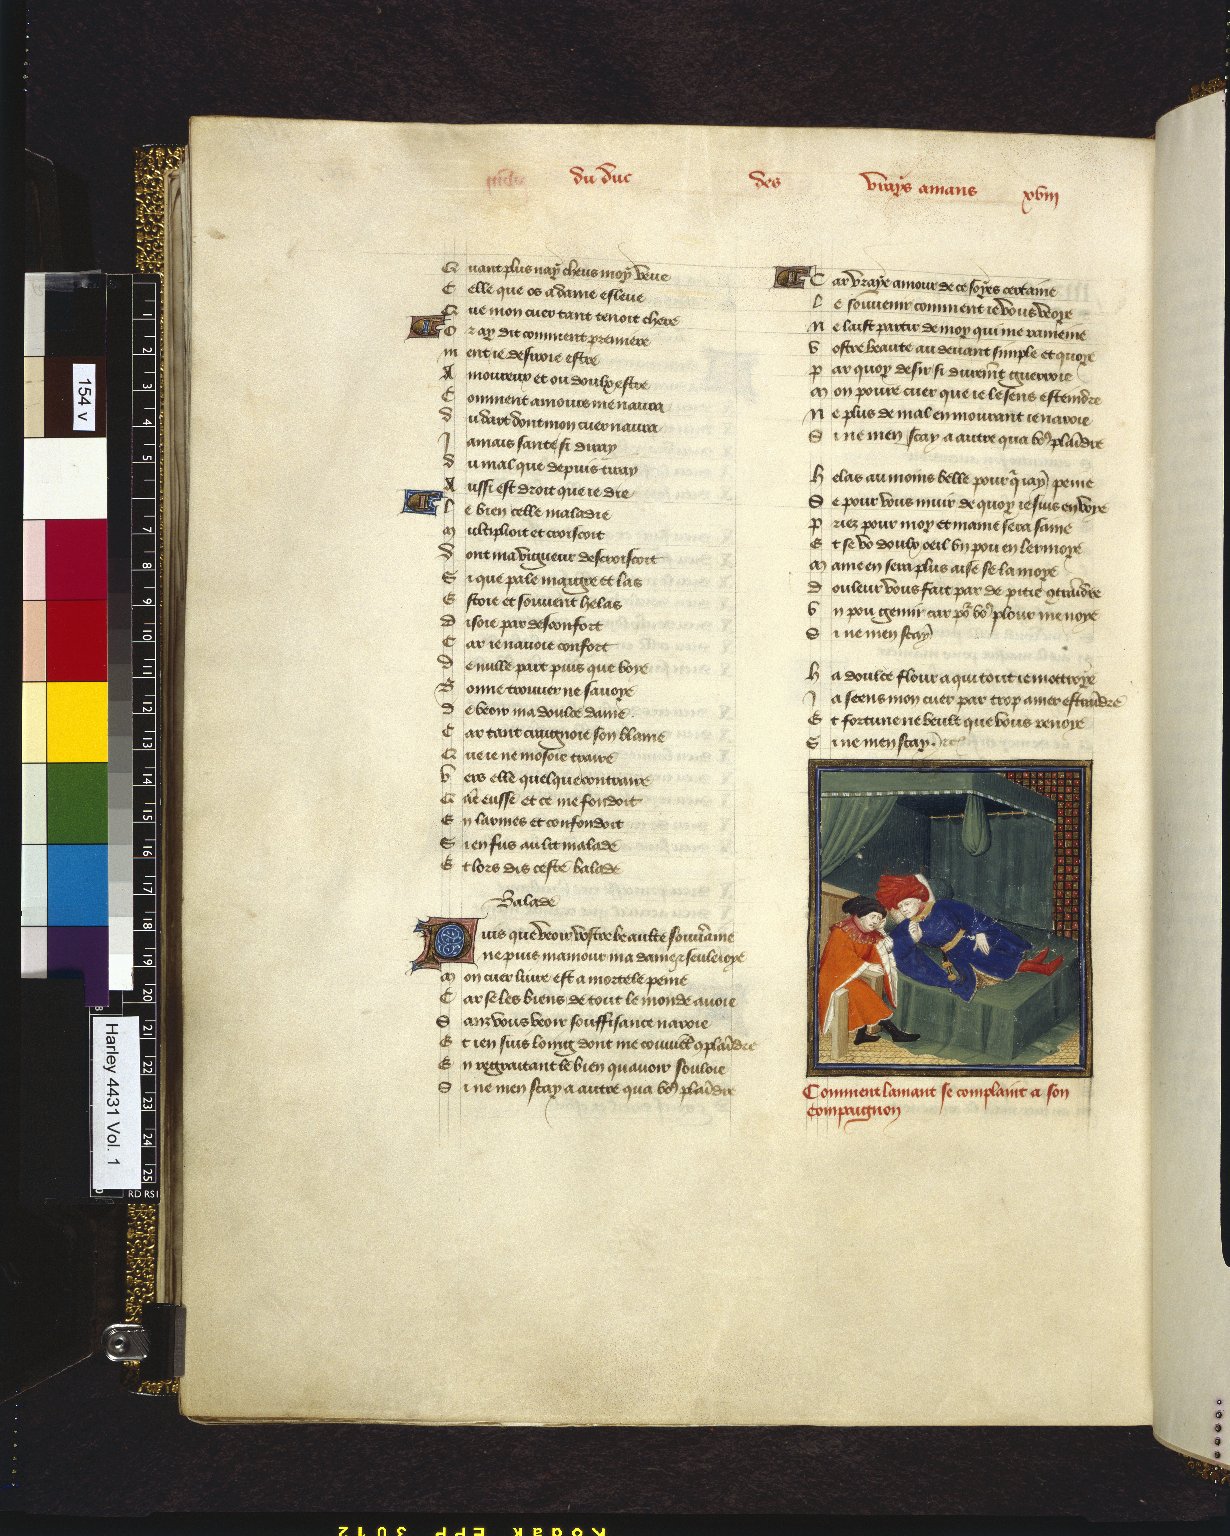 du duc des vrays amans xviii
Quant plus nay cheus moy veue
Celle que os a dame esleue
Que mon cuer tant tenoit chere
Or ay dit comment premiere
ment ie desiroie estre
Amoureux et ou doulx estre
Comment amours me naura
du dart dont mon cuer naura
Jamais sante si diray
du mal que depuis tiray
Aussi est droit que ie die
le bien celle maladie
multiplioit et croiscoit
dont ma vigueur descroiscoit
Si que pale maigre et las
Estoie et souuent helas
disoie par desconfort
Car ie nauoie confort
de nulle part puis que voye
Bonne trouuer ne sauoye
de veoir ma doulce dame
Car tant craignoie son blame
Que ie ne mosoie traire
vers elle quelque contraire
Qar eusse et ce me fondoit
En larmes et confondoit
Si en fus au lit malade
Et lors dis ceste balade
Balade
Puis que veoir vostre beaulte souuraine
ne puis mamour ma dame et seule ioye
mon cuer liure est a mortele peine
Car se les biens de tout le monde auoie
Sanz vous veoir souffisance naroie
Et ien suis loing dont me couuient complaindre
En regraitant le bien quauoir souloie
Si ne men scay a autre qua vous plaindre
Car vraye amour de ce soyes certaine
le souuenir comment ie vous veoye
ne laist partir de moy qui me rameine
vostre beaute au deuant simple et quoye
par quoy desir si durement guerroie
mon poure cuer que ie le sens esteindre
ne plus de mal en mourant ie naroie
Si ne men scay a autre qua vous plaindre
helas au moins belle pour qui iay peine
Se pour vous muir de quoy ie suis en voye
priez pour moy et mame sera saine
Et se vo doulx oeil vn pou en lermoye
mame en sera plus aise se la moye
douleur vous fait par de pitie contraindre
vn pou gemir car pour vous plour menoye
Si ne men scay
ha doulce flour a qui tout ie mottroye
Ja seens mon cuer par trop amer estaindre
Et fortune ne veult que vous reuoye
Si ne men scay
Comment lamant se complaint a son
compaignon
154 v
Harley 4431 Vol. 1
2
3
4
5
7
8
9
10
11
12
13
14
15
16
17
18
19
20
21
22
23
24
25
Kodak EPP 3012